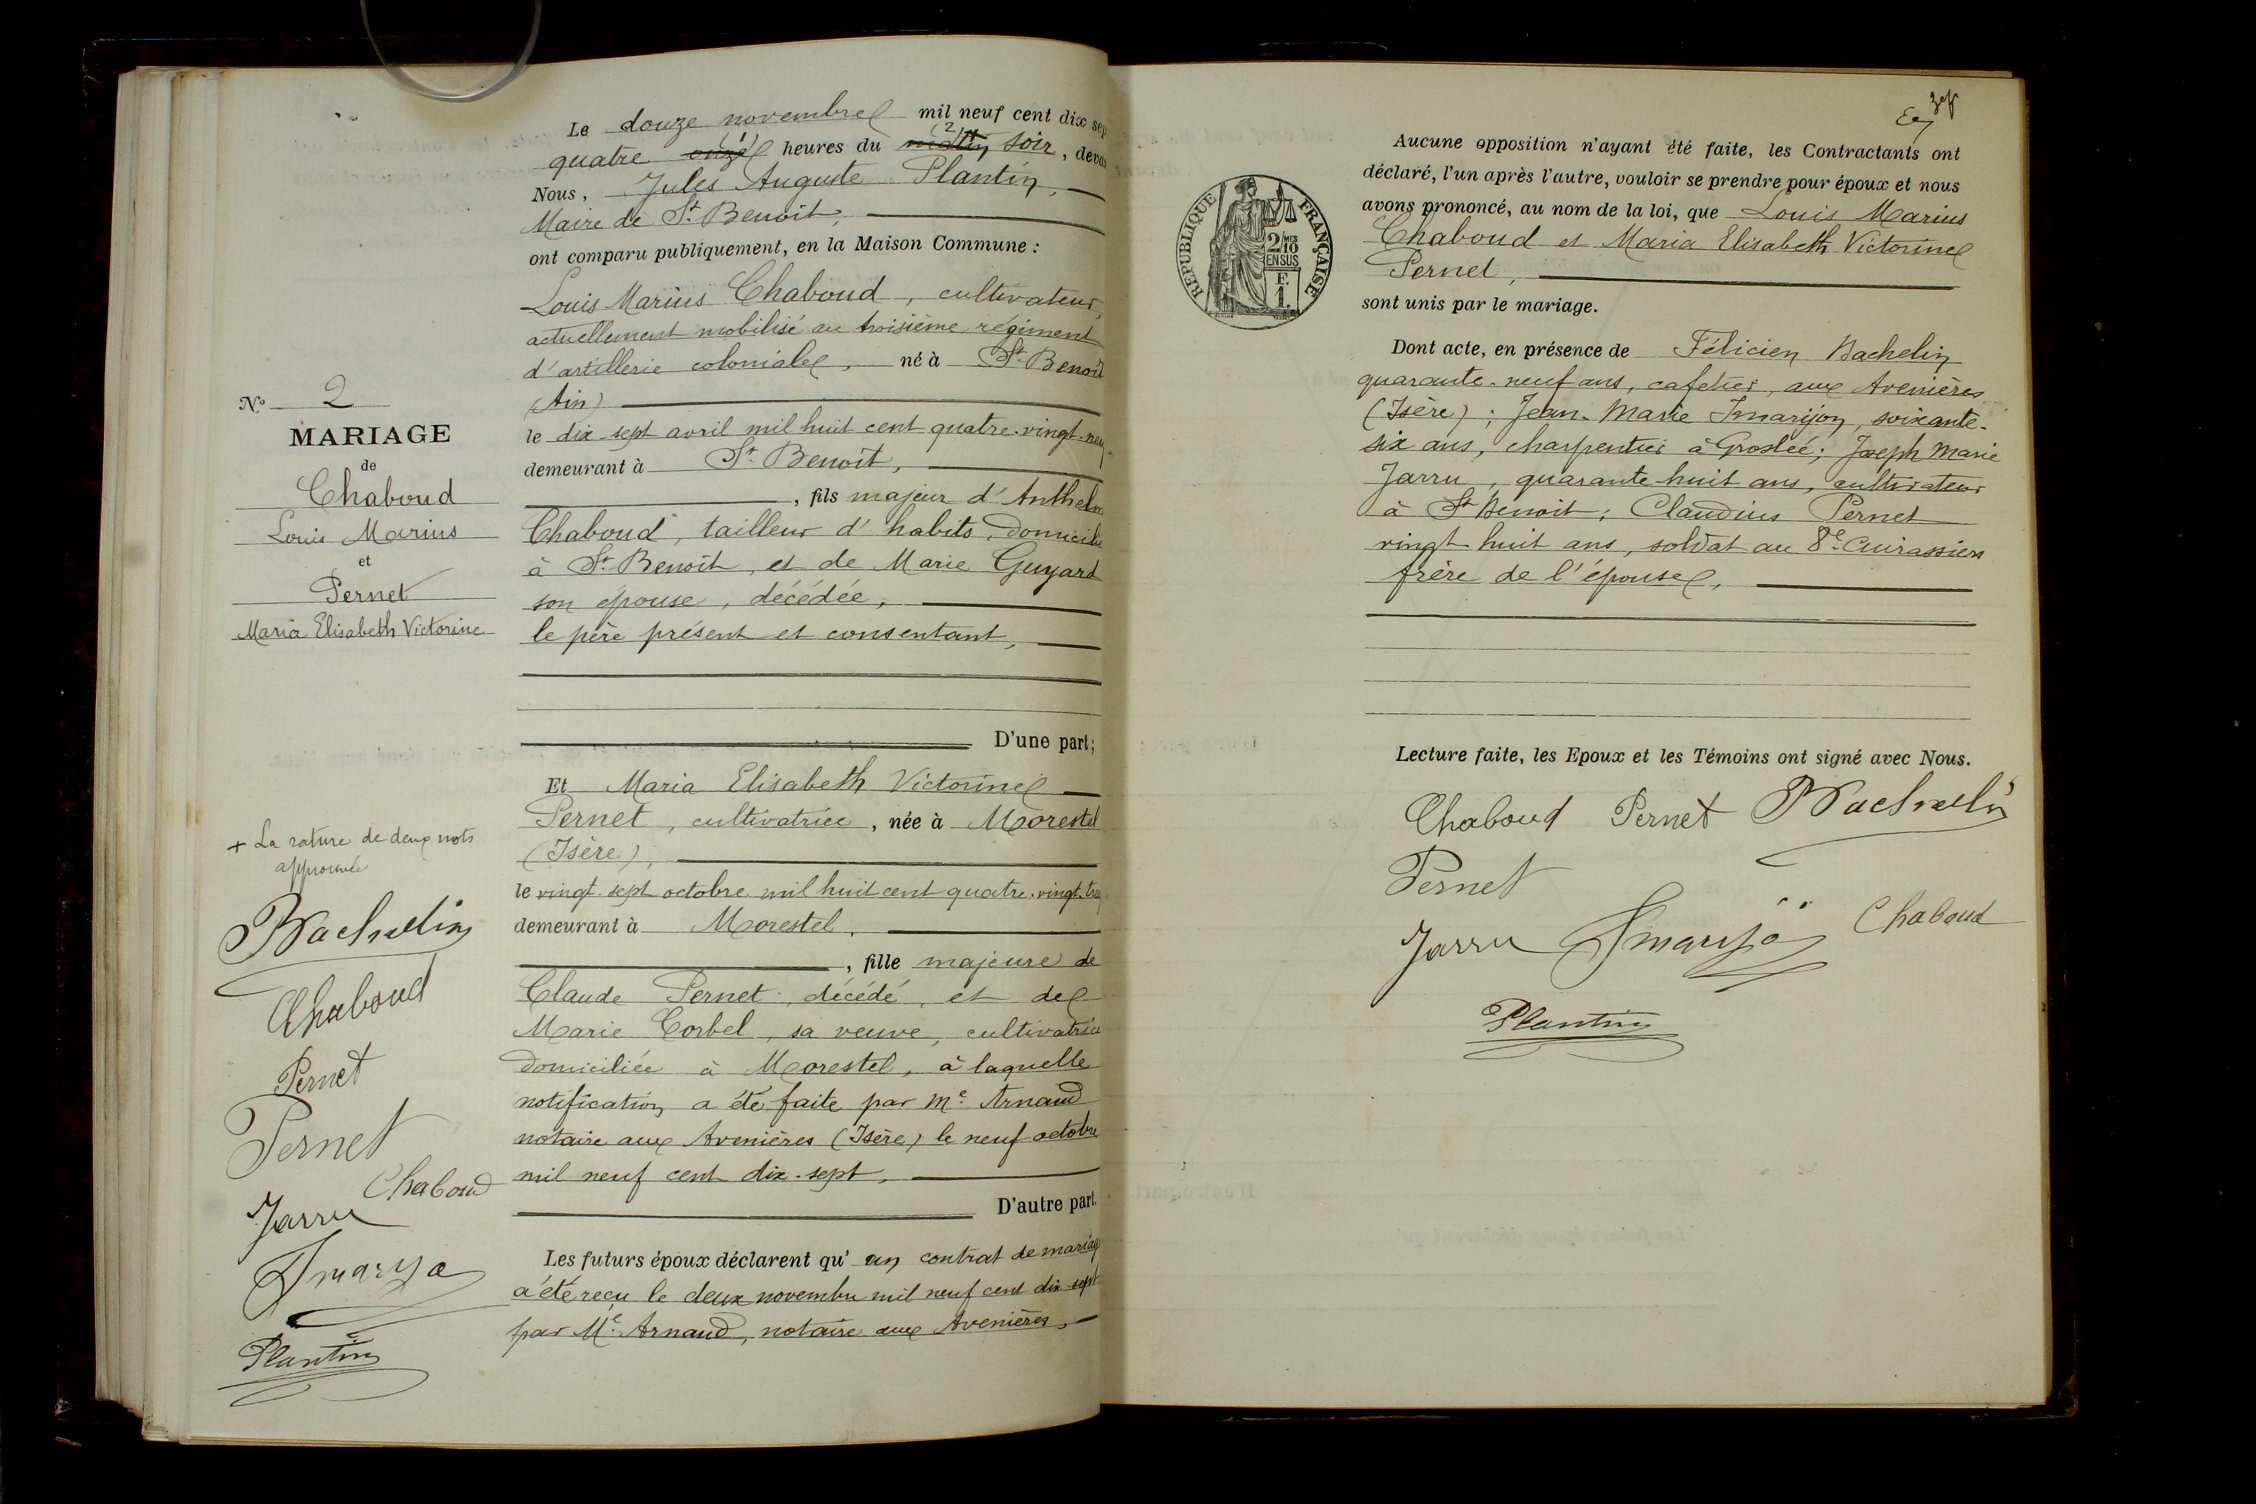 N.º 2
MARIAGE
de
Chaboud
Louis Marius
et
Pernet
Maria Elisabeth Victorine
+ La rature de deux mots
approuvée
Bachelin
Chaboud
Pernet
Pernet
Chaboud
Jarru
Plantin
Le douze novembre mil neuf cent dix sep
quatre onze (1) heures du matin (2) soir, devan
Nous, Jules Auguste Plantin,
Maire de St. Benoit,
ont comparu publiquement, en la Maison Commune :
Louis Marius Chaboud, cultivateur,
actuellement mobilisé au troisième régiment
d'artillerie coloniale, né à St. Benoit
(Ain)
le dix-sept avril mil huit cent quatre-vingt-neuf
demeurant à St. Benoit,
, fils majeur d'Anthelm
Chaboud, tailleur d'habits, domicilié
à St. Benoit, et de Marie Guyard
son épouse, décédée,
le père présent et consentant,
D'une part;
Et Maria Elisabeth Victorine
Pernet, cultivatrice, née à Morestel
(Isère),
le vingt-sept octobre mil huit cent quatre-vingt-
demeurant à Morestel,
, fille majeure de
Claude Pernet, décédé, et de
Marie Corbel, sa veuve, cultivatrice
domiciliée à Morestel, à laquelle
notification a été faite par Me. Arnaud
notaire aux Avenières (Isère) le neuf octobre
mil neuf cent dix-sept,
D'autre part.
Les futurs époux déclarent qu' un contrat de mariage
a été reçu le deux novembre mil neuf cent dix-sept
par Me. Arnaud, notaire aux Avenières,
RÉPUBLIQUE FRANÇAISE
2/10
EN SUS
F.
1.
Aucune opposition n'ayant été faite, les Contractants ont
déclaré, l'un après l'autre, vouloir se prendre pour époux et nous
avons prononcé, au nom de la loi, que Louis Marius
Chaboud et Maria Elisabeth Victorine
Pernet,
sont unis par le mariage.
Dont acte, en présence de Félicien Bachelin
quarante-neuf ans, cafetier, aux Avenières
(Isère); Jean-Marie, soixante-
six ans, charpentier à Groslée; Joseph Marie
Jarru, quarante huit ans, cultivateur
à St. Benoit; Claudius Pernet
vingt huit ans, soldat au 8e. Cuirassiers
frère de l'épouse,
Lecture faite, les Epoux et les Témoins ont signé avec Nous.
Chaboud Pernet Bachelin
Pernet
Jarru Chaboud
Plantin